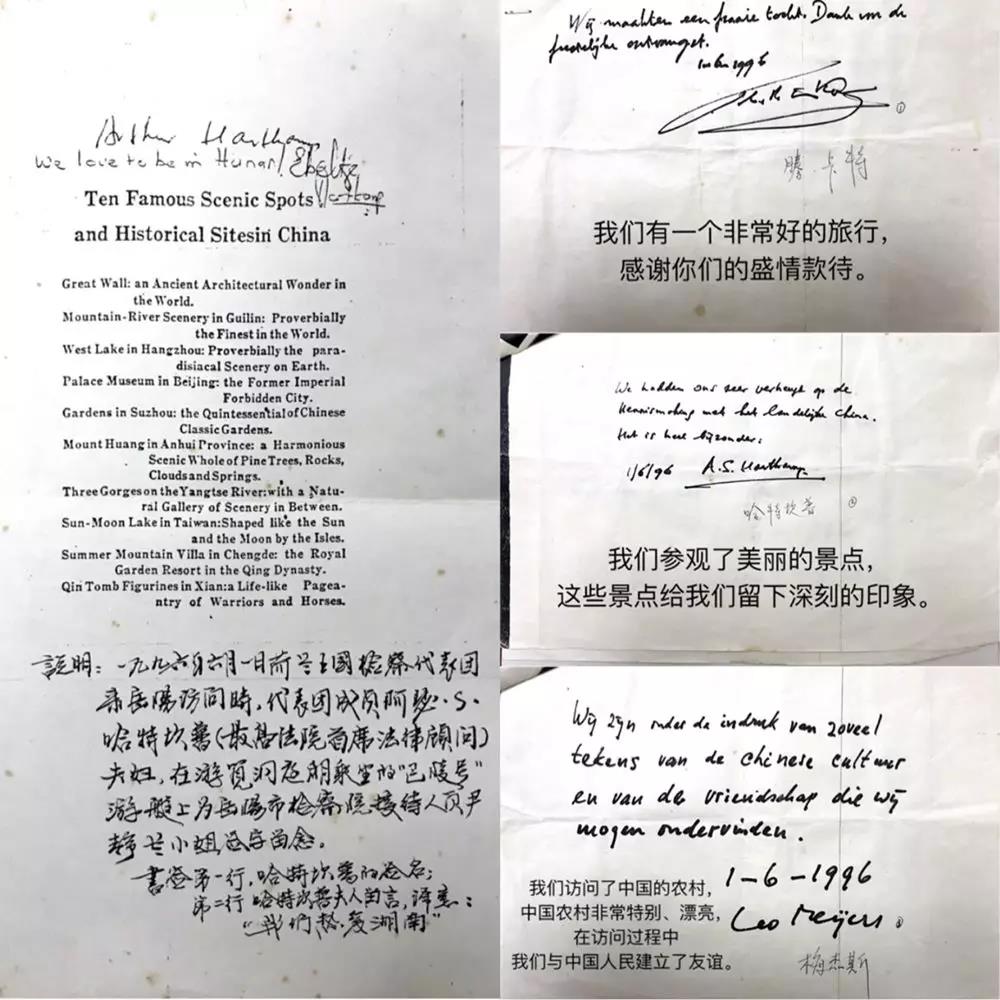 Arthur Hartkamp
We love to be in Hunan! Elseltje
Hartkamp
Ten Famous Scenic Spots
and Historical Sitesin China
Great Wall: an Ancient Architectural Wonder in
the World.
Mountain-River Scenery in Guilin: Proverbially
the Finest in the World.
West Lake in Hangzhou: Proverbially the para-
disiacal Scenery on Earth.
Palace Museum in Beijing: the Former Imperial
Forbidden City.
Gardens in Suzhou: the Quintessential of Chinese
Classic Gardens.
Mount Huang in Anhui Province: a Harmonious
Scenic Whole of Pine Trees, Rocks,
Clouds and Springs.
Three Gorges on the Yangtse River: with a Natu-
ral Gallery of Scenery in Between.
Sun-Moon Lake in Taiwan: Shaped like the Sun
and the Moon by the Isles.
Summer Mountain Villa in Chengde: the Royal
Garden Resort in the Qing Dynasty.
Qin Tomb Figurines in Xian: a Life-like Pagea-
ntry of Warriors and Horses.
説明：一九九六年六月一日荷兰王國檢察代表团
来岳陽访问時，代表团成员阿瑟·S·
哈特坎普(最高法院首席法律顧问)
夫妇，在游览洞庭湖乘坐的"巴陵号"
游艇上为岳陽市檢察院接待人员尹
静兰小姐签字留念。
書签第一行，哈特坎普的签名；
第二行哈特坎普夫人留言，译意：
"我们热爱湖南"
Wij maakten een fraaie tocht. Dank voor de
feestelijke ontvangst.
1996
①
腾·卡特
我们有一个非常好的旅行，
感谢你们的盛情款待。
We hadden ons zeer verheugd op de
kennismaking met het landelijke China.
Het is heel bijzonder.
1/6/96 A.S. Hartkamp
哈特坎普 ②
我们参观了美丽的景点，
这些景点给我们留下深刻的印象。
Wij zijn onder de indruk van zoveel
tekens van de chinese cultuur
en van de vriendschap die wij
mogen ondervinden.
1-6-1996
Leo Meijers ③
梅杰斯
我们访问了中国的农村，
中国农村非常特别、漂亮，
在访问过程中
我们与中国人民建立了友谊。